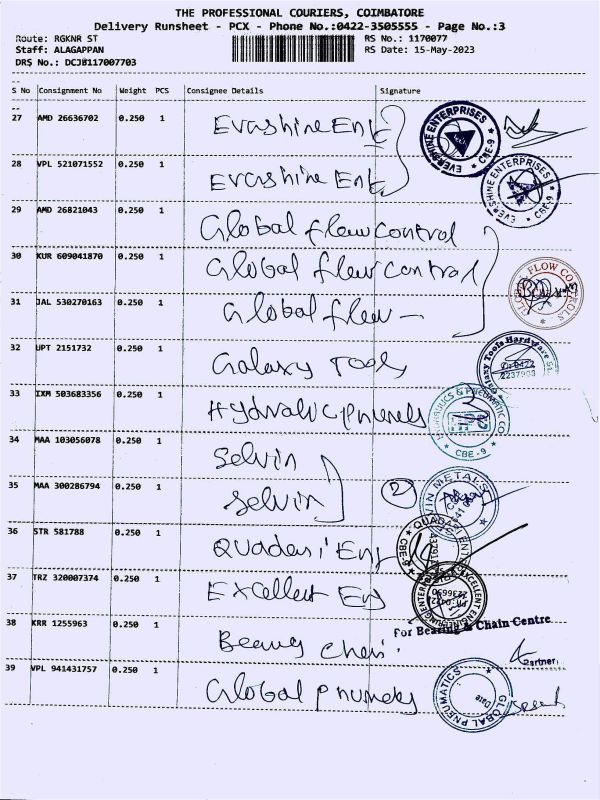 THE PROFESSIONAL COURIERS, COIMBATORE
Delivery Runsheet - PCX - Phone No.:0422-3505555 - Page No.:3
Route: RGKNR ST
RS No.: 1170077
Staff: ALAGAPPAN
RS Date: 15-May-2023
DRS No.: DCJB117007703
S No Consignment No Weight PCS Consignee Details Signature
27 AMD 26636702 0.250 1 Evashine Ent
EVERSHINE ENTERPRISES * CBE-9 *
28 VPL 521071552 0.250 1 Evashine Ent
EVERSHINE ENTERPRISES * CBE-9 *
29 AMD 26821043 0.250 1 Global flow control
30 KUR 609041870 0.250 1 Global flow control
GLOBAL FLOW CONTROLS
31 JAL 530270163 0.250 1 Global flow -
32 UPT 2151732 0.250 1 Galaxy Tools
Galaxy Tools Hardware
2237903
33 IXM 503683356 0.250 1
HYDRAULICS & PNEUMATIC CO
* CBE - 9 *
34 MAA 103056078 0.250 1 Selvin
35 MAA 300286794 0.250 1 Selvin
2
METALS
36 STR 581788 0.250 1 Quadant Eng
CBE-9
37 TRZ 320007374 0.250 1 Excellent Eng
EXCELLENT ENGINEERING ENTERPRISES
38 KRR 1255963 0.250 1
For Bearing & Chain Centre
Partner
39 VPL 941431757 0.250 1 Global
GLOBAL PNEUMATICS
Date